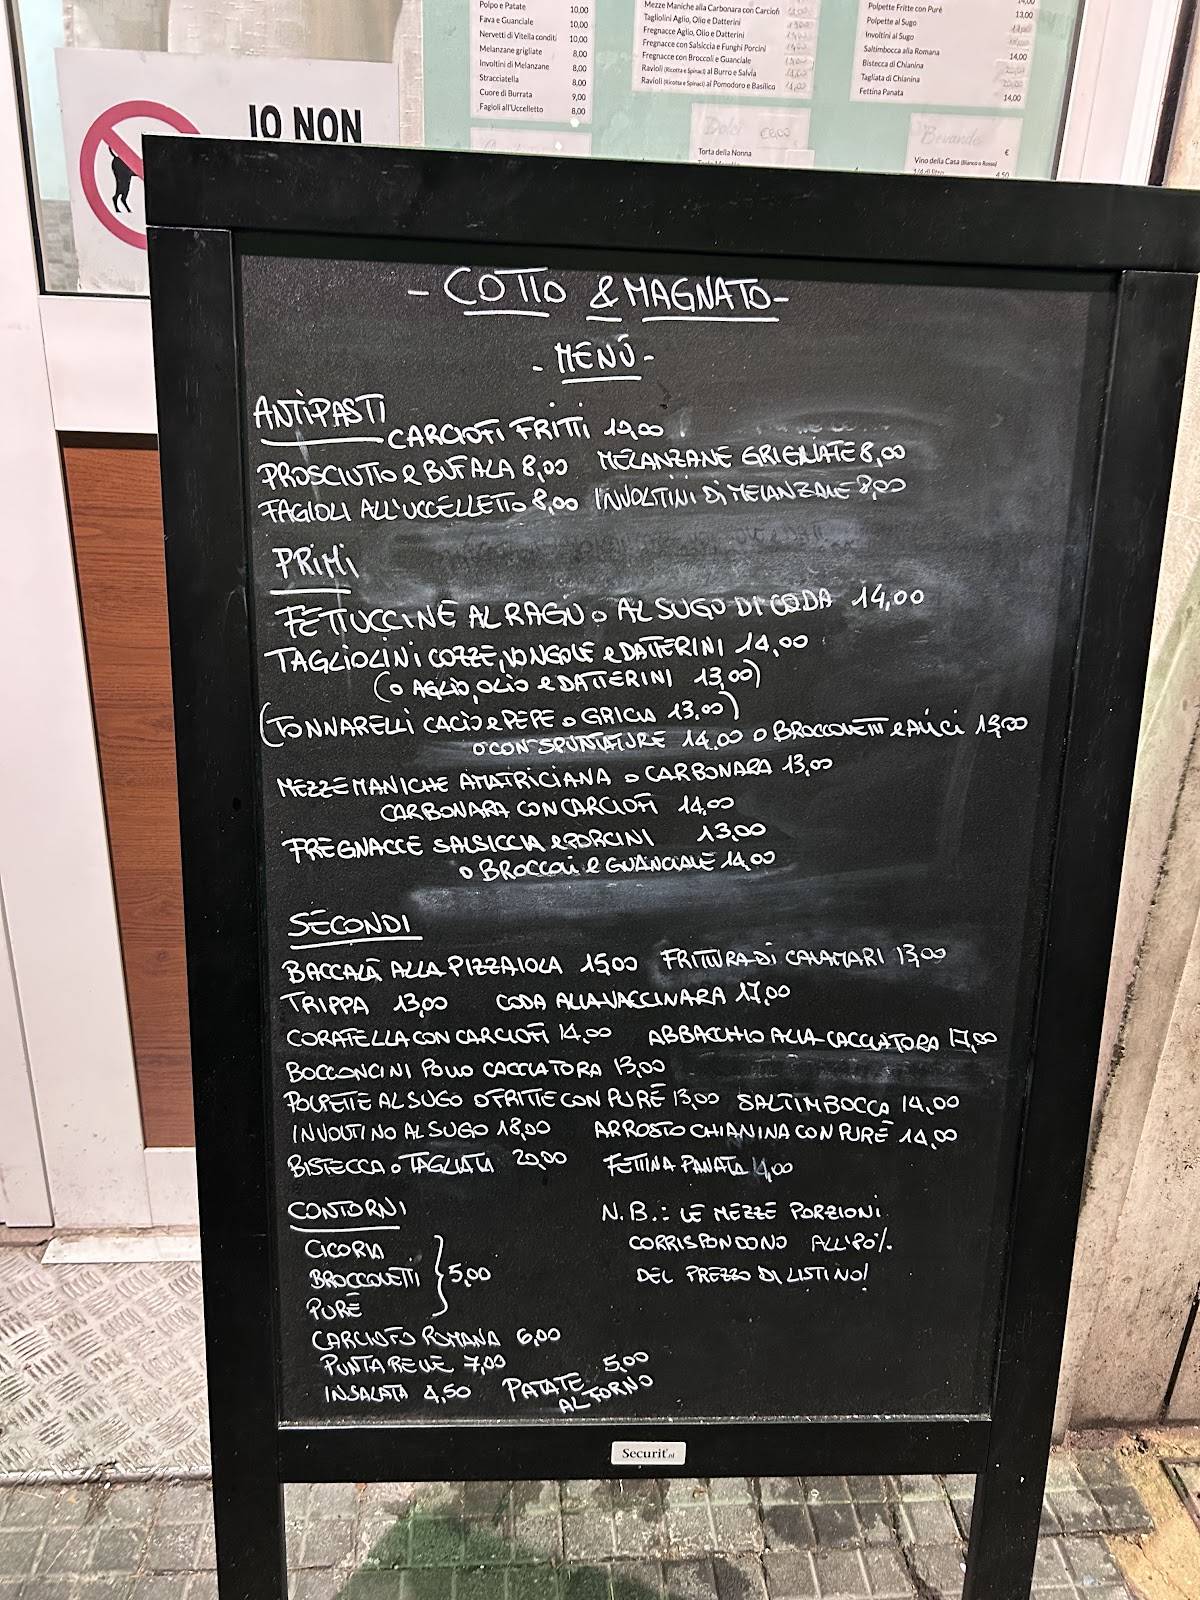 Polpo e Patate 10,00
Fava e Guanciale 10,00
Nervetti di Vitella conditi 10,00
Melanzane grigliate 8,00
Involtini di Melanzane 8,00
Stracciatella 8,00
Cuore di Burrata 9,00
Fagioli all'Uccelletto 8,00
Mezze Maniche alla Carbonara con Carciofi
Tagliolini Aglio, Olio e Datterini
Fregnacce Aglio, Olio e Datterini
Fregnacce con Salsiccia e Funghi Porcini
Fregnacce con Broccoli e Guanciale
Ravioli (Ricotta e Spinaci) al Burro e Salvia
Ravioli (Ricotta e Spinaci) al Pomodoro e Basilico
14,00
Polpette Fritte con Purè 13,00
Polpette al Sugo
Involtini al Sugo
Saltimbocca alla Romana 14,00
Bistecca di Chianina
Tagliata di Chianina
Fettina Panata 14,00
Dolci €6,00
Torta della Nonna
Bevande
€
Vino della Casa (Bianco o Rosso)
1/4 di litro 4,50
IO NON
- COTTO & MAGNATO -
- MENÚ -
ANTIPASTI
CARCIOFI FRITTI 10,00
PROSCIUTTO e BUFALA 8,00 MELANZANE GRIGLIATE 8,00
FAGIOLI ALL'UCCELLETTO 8,00 INVOLTINI DI MELANZANE 8,00
PRIMI
FETTUCCINE AL RAGU o AL SUGO DI CODA 14,00
TAGLIOLINI COZZE, VONGOLE e DATTERINI 14,00
(o AGLIO, OLIO e DATTERINI 13,00)
(TONNARELLI CACIO e PEPE o GRICIA 13,00)
o CON SPUNTATURE 14,00 o BROCCOLETTI e ALICI 15,00
MEZZE MANICHE AMATRICIANA o CARBONARA 13,00
CARBONARA CON CARCIOFI 14,00
FREGNACCE SALSICCIA e PORCINI 13,00
o BROCCOLI e GUANCIALE 14,00
SECONDI
BACCALÀ ALLA PIZZAIOLA 15,00 FRITTURA DI CALAMARI 13,00
TRIPPA 13,00 CODA ALLA VACCINARA 17,00
CORATELLA CON CARCIOFI 14,00 ABBACCHIO ALLA CACCIATORA 17,00
BOCCONCINI POLLO CACCIATORA 13,00
POLPETTE AL SUGO O FRITTE CON PURÈ 13,00 SALTIMBOCCA 14,00
INVOLTINO AL SUGO 18,00 ARROSTO CHIANINA CON PURÈ 14,00
BISTECCA o TAGLIATA 20,00 FETTINA PANATA 14,00
CONTORNI
CICORIA
BROCCOLETTI 5,00
PURÈ
CARCIOFO ROMANA 6,00
PUNTARELLE 7,00
INSALATA 4,50 PATATE AL FORNO 5,00
N.B.: LE MEZZE PORZIONI
CORRISPONDONO ALL'80%
DEL PREZZO DI LISTINO!
Securit.nl